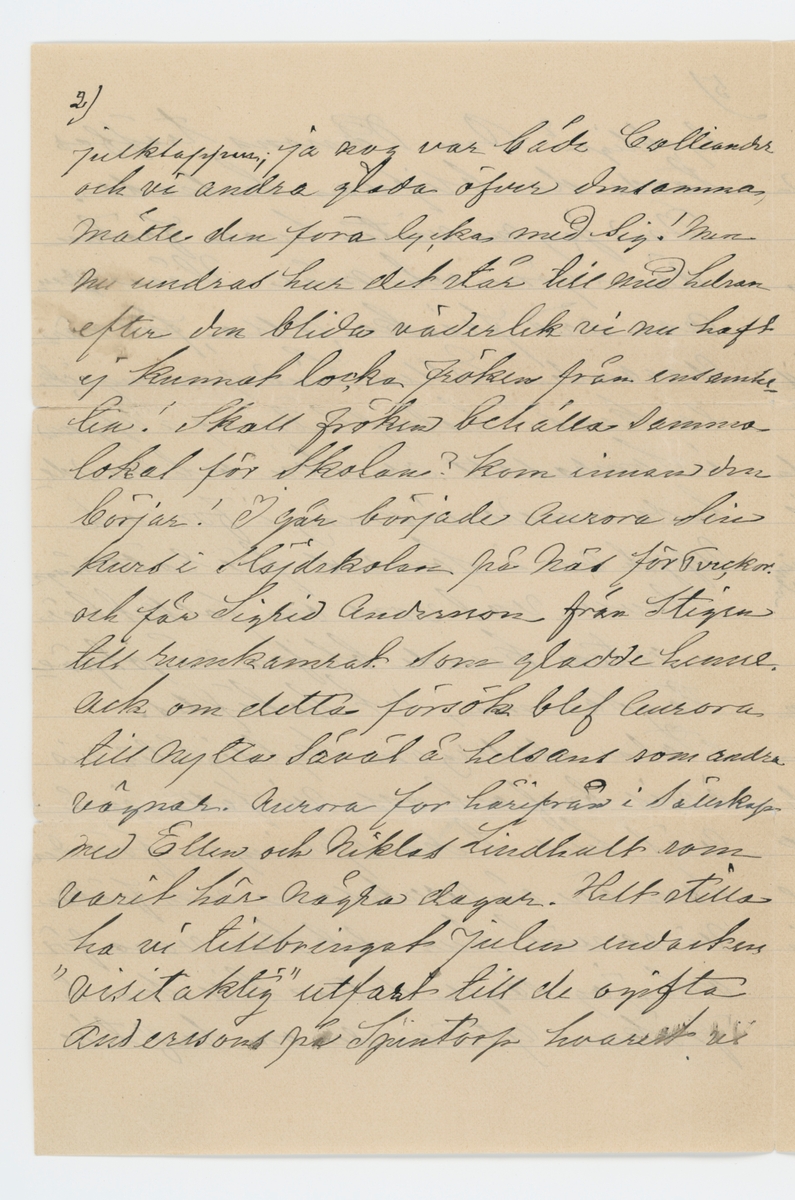 2)
julklappen; ja nog var både Colliander
och vi andra glada öfver densamma,
måtte den föra lycka med sig! Men
nu undras hur det står till med helsan
efter den blida väderlek vi nu haft
ej kunnat locka fröken från ensamhe-
ten! Skall fröken behålla samma
lokal för Skolan? kom innan den
börjar! I går började Aurora sin
kurs i Slöjdskolan på Nääs för
och får Sigrid Anderson från Stigen
till rumkamrat som gladde henne.
Ack om detta försök blef Aurora
till nytta såväl å helsans som andra
vägnar. Aurora for härifrån i Sällskap
med Ellen och Niklas Lindhult som
varit här några dagar. Helt stilla
ha vi tillbringat Julen endast en
"visitaktig" utfart till de ogifta
Anderssons på Spintorp hvarest vi